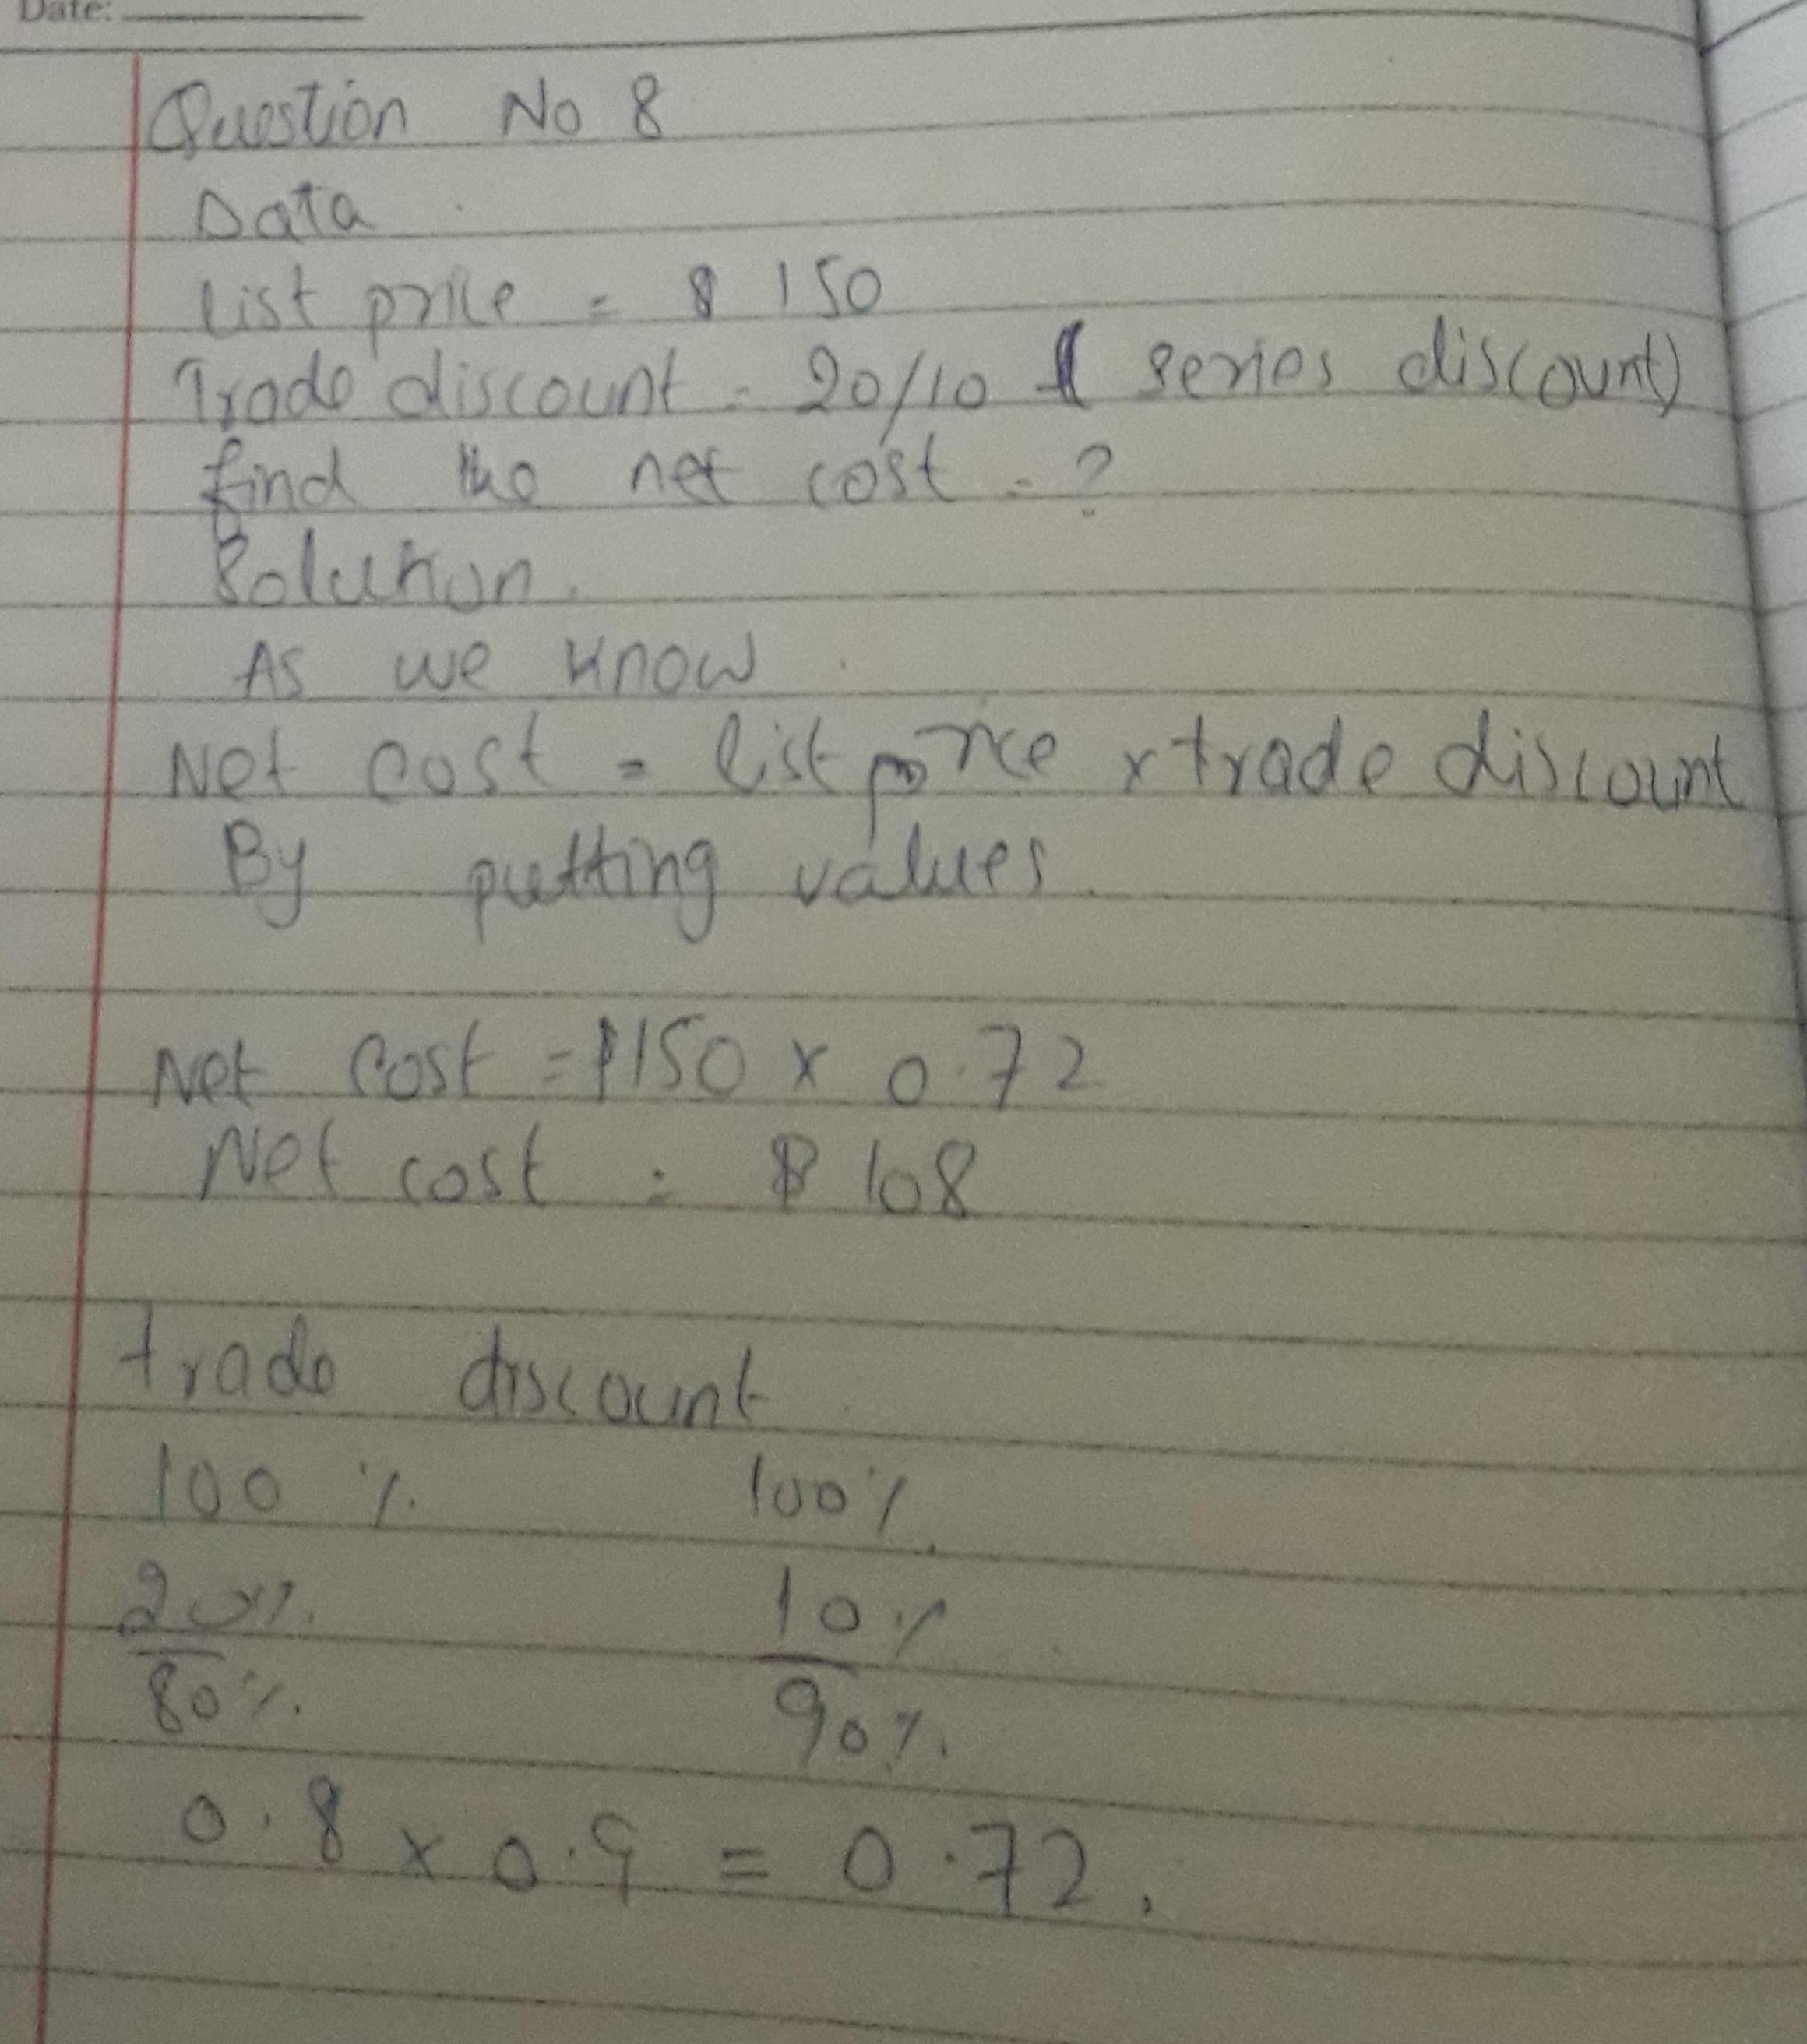 Date:
Question No 8
Data
List price = $ 150
Trade discount = 20/10 ( series discount)
find the net cost = ?
Solution.
As we know
Net cost = list price x trade discount
By putting values.
Net cost = $150 x 0.72
Net cost = $ 108
trade discount
100 % 100%
20% 10%
80% 90%
0.8 x 0.9 = 0.72.